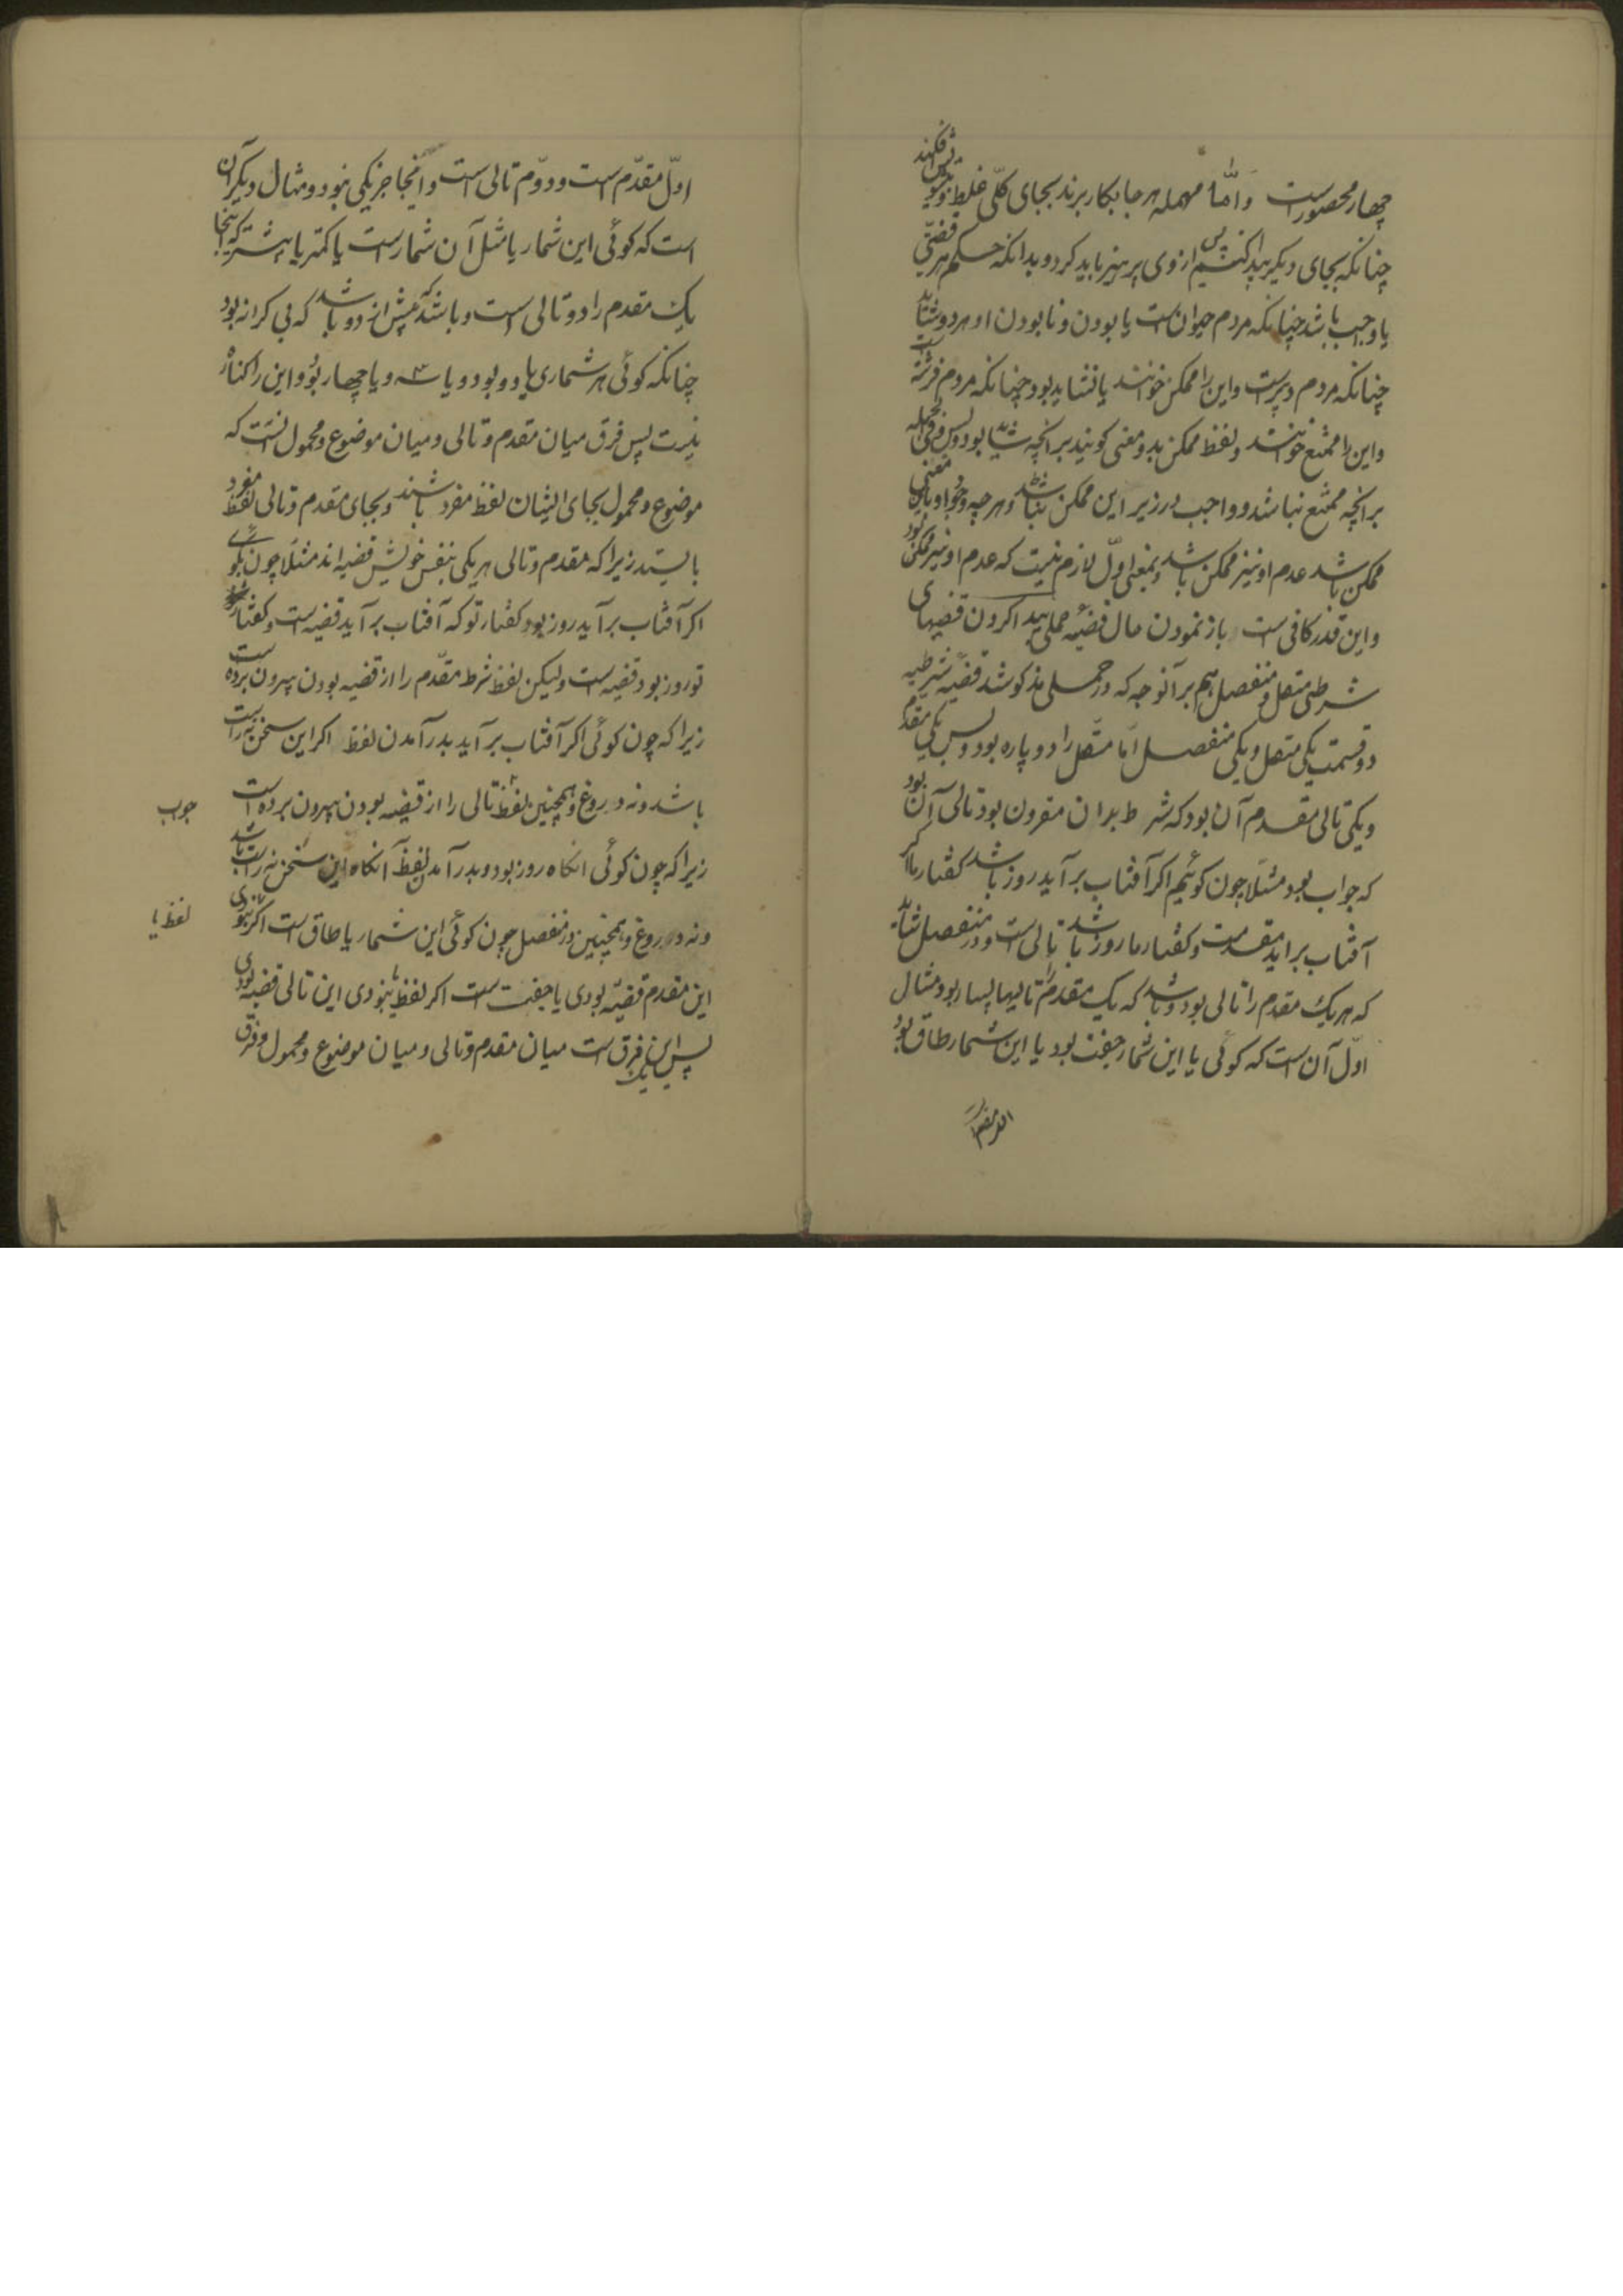 چهار محصور است و امّا مهمله هر جا بکار برند بجای کلّی غلط و تشویش فکند
چنانکه بجای دیگر پیدا کنیم پس از وی پرهیز باید کرد و بدانکه حکم هر قضیّتی
یا واجب باشد چنانکه مردم حیوان است یا بودن و نابودن او هر دو شاید
چنانکه مردم دبیر است و این را ممکن خوانند یا نشاید بود چنانکه مردم فرشته است
و این را ممتنع خوانند و لفظ ممکن بدو معنی کویند بر انچه شاید بود و بس
بر انچه ممتنع نباشد و واجب در زیر این ممکن باشد و هر چه وجود او باین معنی
ممکن باشد عدم او نیز ممکن باشد و بمعنی اوّل لازم نیست که عدم او نیز ممکن بود
و این قدر کافی است باز نمودن حال قضیهٔ حملی پیدا کردن قضیهای
شرطی متصل و منفصل هم بر آنوجه که در حملی مذکور شد قضیهٔ شرطیه
دو قسمت یکی متصل و یکی منفصل امّا متّصل را دو پاره بود و بس یکی مقدم
و یکی تالی مقدم آن بود که شرط بدان مقرون بود تالی آن بود
که جواب بود مثلا چون کوئیم اکر آفتاب بر آید روز باشد کفتار ما اکر
آفتاب براید مقدم است و کفتار ما روز باشد تالی است و در منفصل شاید
که هر یک مقدم را تالی بود و باشد که یک مقدم را تالیها بسیار بود مثال
اوّل آن است که کوئی یا این شمار جفت بود یا این شمار طاق بود
اوّل مقدّم است و دوّم تالی است و اینجا جز یکی نبود و مثال دیکر آن
است که کوئی این شمار یا مثل آن شمار است یا کمتر یا بیشتر که اینجا
یک مقدم را دو تالی است و باشد که بیش از دو باشد که بی کرانه بود
چنانکه کوئی هر شماری یا دو بود و یا سه و یا چهار بود و این را کناره
نیست پس فرق میان مقدم و تالی و میان موضوع و محمول انست که
موضوع و محمول بجای ایشان لفظ مفرد باشند و بجای مقدم و تالی لفظ مفرد
بایستد زیرا که مقدم و تالی هر یکی بنفس خویش قضیه اند مثلا چون کوئی
اکر آفتاب بر آید روز بود کفتار تو که آفتاب بر آید قضیه است و کفتار
تو روز بود قضیه است ولیکن لفظ شرط مقدّم را از قضیه بودن بیرون برده است
زیرا که چون کوئی اکر آفتاب بر آید بدر آمدن لفظ اکر این سخن نه راست
باشد و نه دروغ و همچنین لفظ تالی را از قضیه بودن بیرون برده است
جواب
زیرا که چون کوئی انکاه روز بود و بدر آمدن لفظ آنکاه این سخن نه راست باشد
و نه دروغ و همچنین در منفصل چون کوئی این شمار یا طاق است اکر نبودی
لفظ یا
این مقدم قضیّه بودی یا جفت است اکر لفظ یا نبودی این تالی قضیه بودی
پس این یک فرق است میان مقدم و تالی و میان موضوع و محمول و فرق